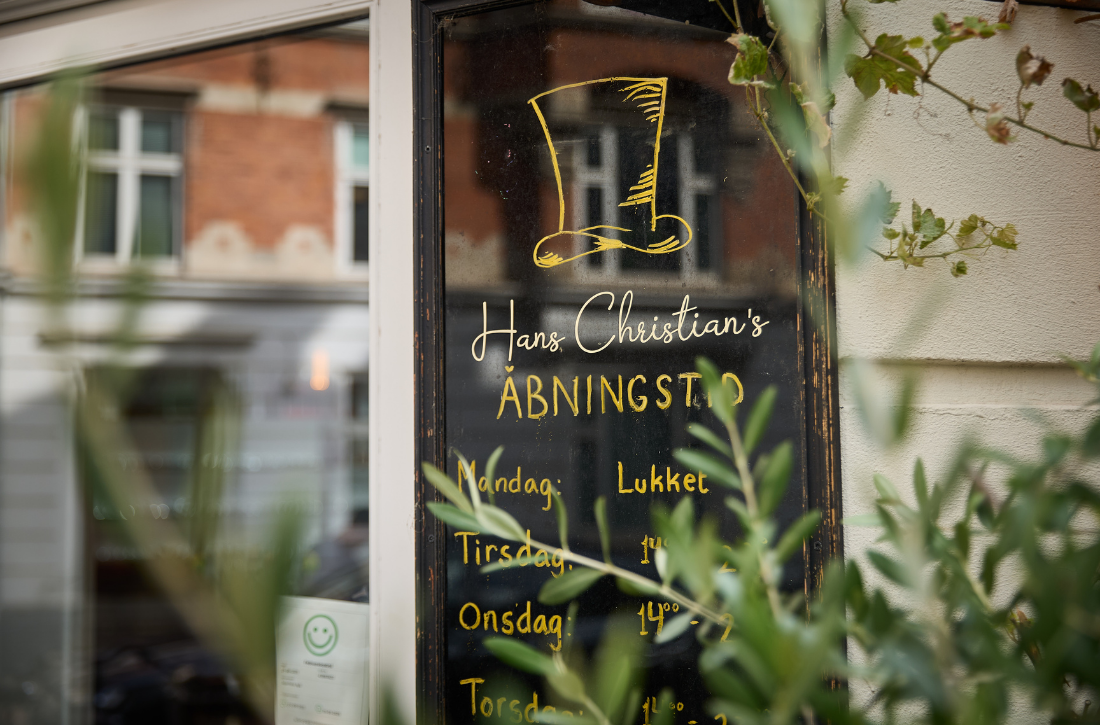 Hans Christian's
ÅBNINGSTID
Mandag: Lukket
Tirsdag:
Onsdag: 14⁰⁰ -
Torsdag: 14⁰⁰ -